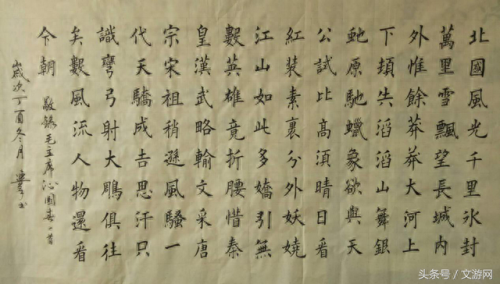 北國風光千里冰封
萬里雪飄望長城内
外惟餘莽莽大河上
下頓失滔滔山舞銀
蛇原馳蠟象欲與天
公試比高須晴日看
紅装素裹分外妖嬈
江山如此多嬌引無
數英雄竟折腰惜秦
皇漢武略輸文采唐
宗宋祖稍遜風騷一
代天驕成吉思汗只
識彎弓射大鵰俱往
矣數風流人物還看
今朝 敬錄毛主席沁園春一首
歲次丁酉冬月 書
头条号 / 文游网